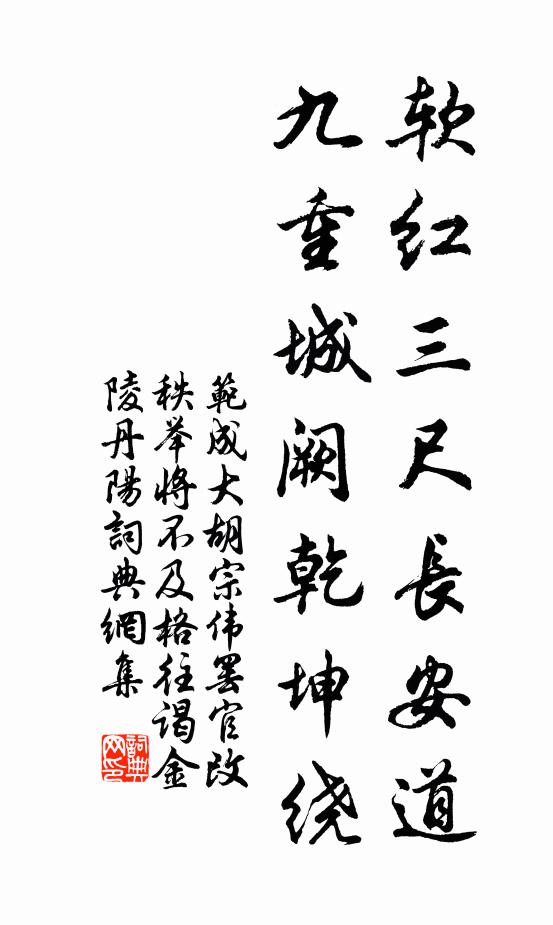 软红三尺長安道
九重城阙乾坤绕
範成大胡宗伟罢官改
秩举将不及格往谒金
陵丹陽詞典網集
詞典网印